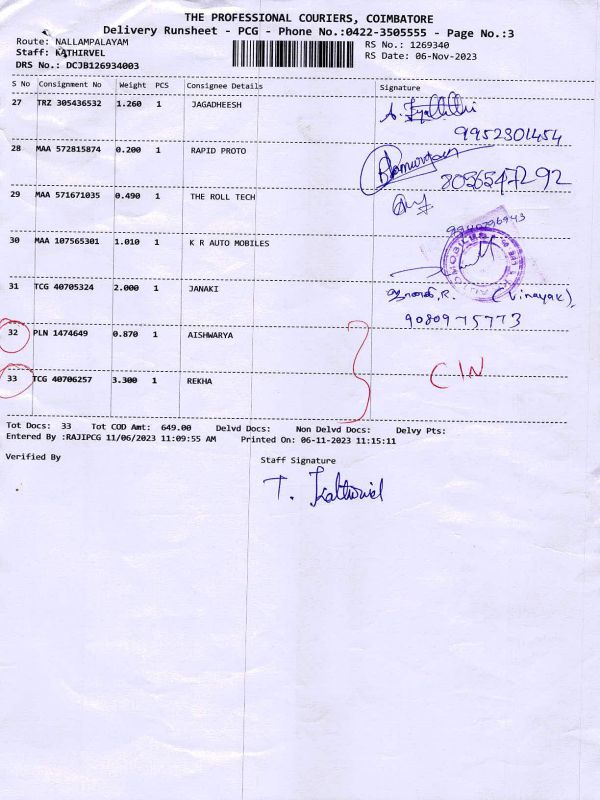 THE PROFESSIONAL COURIERS, COIMBATORE
Delivery Runsheet - PCG - Phone No.:0422-3505555 - Page No.:3
Route: NALLAMPALAYAM
RS No.: 1269340
Staff: KATHIRVEL
RS Date: 06-Nov-2023
DRS No.: DCJB126934003
S No Consignment No Weight PCS Consignee Details Signature
27 TRZ 305436532 1.260 1 JAGADHEESH
9952301454
28 MAA 572815874 0.200 1 RAPID PROTO
8056547292
29 MAA 571671035 0.490 1 THE ROLL TECH
30 MAA 107565301 1.010 1 K R AUTO MOBILES
31 TCG 40705324 2.000 1 JANAKI
ஜானகி.R. (Vinayak)
9080975773
32 PLN 1474649 0.870 1 AISHWARYA
33 TCG 40706257 3.300 1 REKHA
C/N
Tot Docs: 33 Tot COD Amt: 649.00 Delvd Docs: Non Delvd Docs: Delvy Pts:
Entered By :RAJIPCG 11/06/2023 11:09:55 AM Printed On: 06-11-2023 11:15:11
Verified By Staff Signature
T. Kathirvel